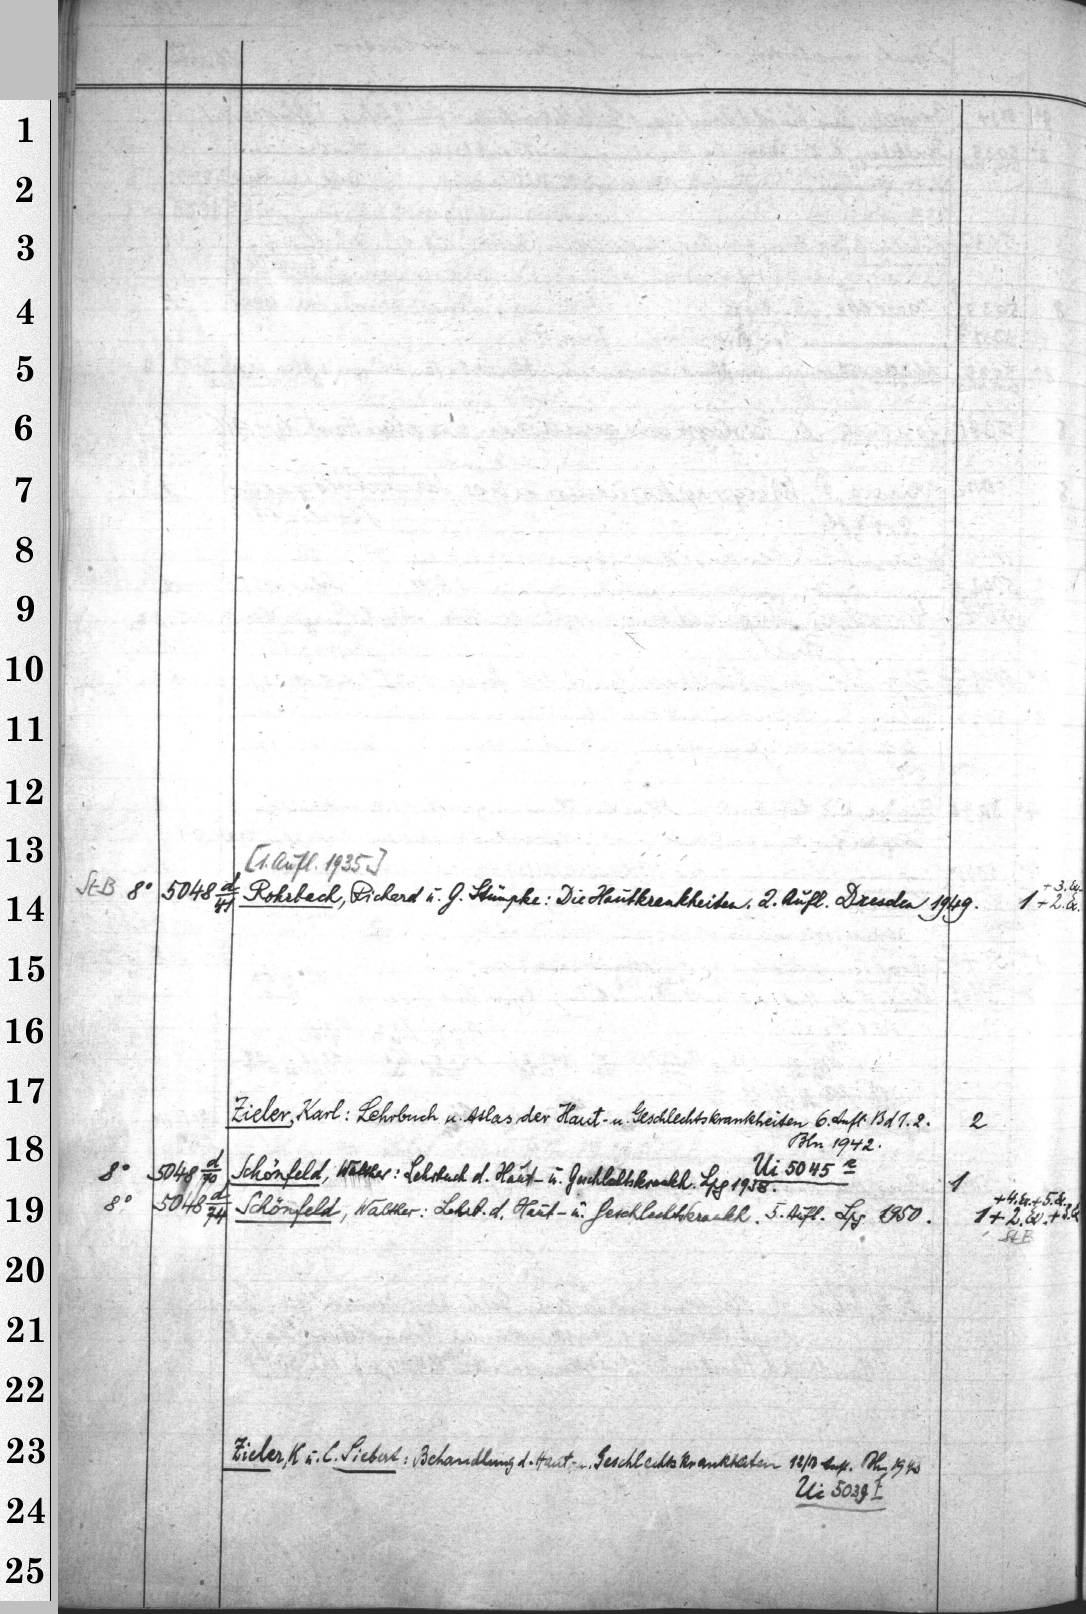 1
2
3
4
5
6
7
8
9
10
11
12
13
[1. Aufl. 1935.]
14
St-B 8° 5048 d/41 Rohrbach, Richard u. G. Stümpke: Die Hautkrankheiten. 2. Aufl. Dresden 1949. 1 + 2. Ex. + 3. Ex.
15
16
17
Zieler, Karl: Lehrbuch u. Atlas der Haut- u. Geschlechtskrankheiten 6. Aufl. Bd 1. 2. 2
Bln 1942.
18
Ui 5045
8° 5048 d/70 Schönfeld, Walther: Lehrbuch d. Haut- u. Geschlechtskrankh. Lpg 1938. 1
19
8° 5048 d/74 Schönfeld, Walther: Lehrb. d. Haut- u. Geschlechtskrankh. 5. Aufl. Lpg 1950. 1 + 2. Ex. + 3. Ex + 4. Ex. + 5. Ex.
St-B
20
21
22
23
Zieler, K u. C. Siebert: Behandlung d. Haut- u. Geschlechtskrankheiten 12/13 Aufl. Bln 1940
Ui 5039 I
24
25